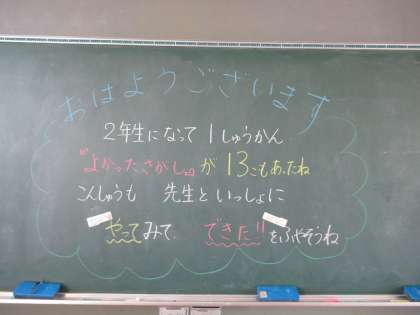 おはようございます
２年生になって１しゅうかん
『よかったさがし』が13こもあったね
こんしゅうも 先生といっしょに
やってみて できた!!をふやそうね